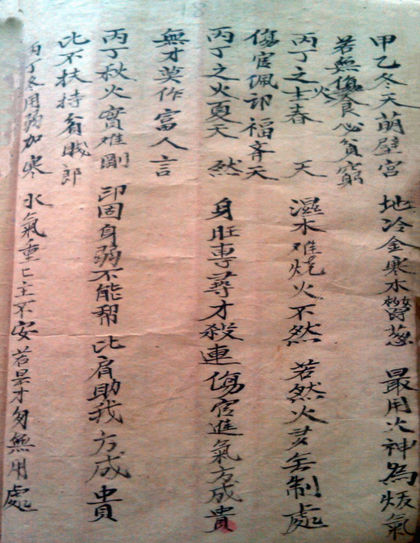 甲乙冬天萌壁宮 地冷金寒水鬱葱 最用火神為炍氣
若無傷食必貧窮
丙丁之火春天 濕木难燒火不然 若然火多無制處
傷官佩印福齊天
丙丁之火夏天然 身旺專尋才殺連 傷官進氣方成貴
無才莫作富人言
丙丁秋火實难剛 印固身弱不能幫 比肩助我方成貴
比不扶持看賊郎
丙丁冬用弱加寒 水氣重亡主不安 若是才旬無用處